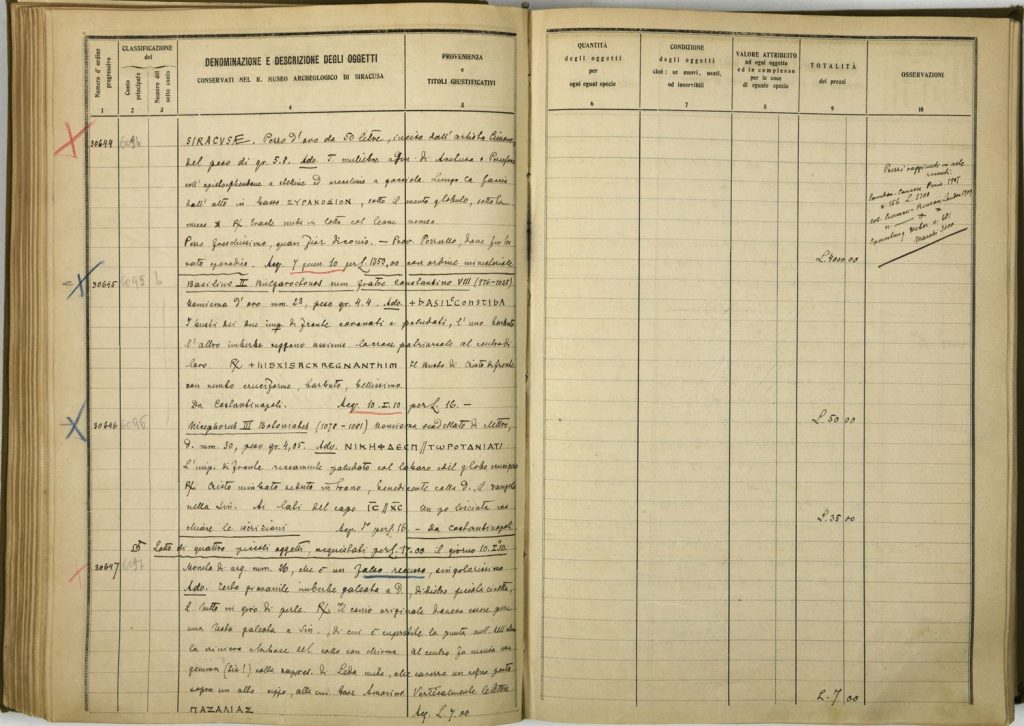 Numero d'ordine progressivo
CLASSIFICAZIONE
dei
Conto principale
Numero del sotto conto
DENOMINAZIONE E DESCRIZIONE DEGLI OGGETTI
CONSERVATI NEL R. MUSEO ARCHEOLOGICO DI SIRACUSA
PROVENIENZA
e
TITOLI GIUSTIFICATIVI
1 2 3 4 5
30644 6094 SIRACVSÆ. Pezzo d'oro da 50 litre, inciso dall'artista Cimone,
del peso di gr. 5.8. Adv. T. muliebre a Sin di Arethusa o Persefone
coll'opistosphendone a stelline ed orecchino a
dall'alto in basso ΣΥΡΑΚΟΣΙΟΝ, sotto il mento globulo, sotto la
℞ Eracle nudo in lotta col leone nemeo.
Pezzo freschissimo, quasi fior di conio. — Prov.
vato sporadico. Acq. 7 1350,00 con ordine ministeriale
30645 6095 Basilius II Bulgaroctonos cum fratre Constantino VIII (976-1025)
Nomisma d'oro mm. 23, peso gr. 4.4. Adv.
I busti dei due imp. di fronte coronati e paludati, l'uno barbuto
l'altro imberbe reggono assieme la croce patriarcale al
loro. ℞ Il busto di Cristo di fronte
con nimbo cruciforme, barbuto, bellissimo.
Da Costantinopoli. Acq. 10.I.10 per L. 16. —
30646 6096 Nicephorus III Botoniates (1078-1081) Nomisma scodellato di elettro,
d. mm. 30, peso gr. 4,05. Adv. ΝΙΚΗΦΔΕСΠ//ΤѠΡΟΤΑΝΙΑΤΙ
L'imp. di fronte riccamente paludato col labaro ed il globo
℞ Cristo nimbato seduto in trono, benedicente colla D., il vangelo
nella Sin. Ai lati del capo ĪC X̄C Un po lisciata ma
chiare le iscrizioni Acq. per L. 16 — Da Costantinopoli
Lotto di quattro piccoli oggetti, acquistati per L. 17.00 il giorno 10.I.10.
30647 6097 Moneta di arg. mm. 26, che è un falso recuso, singolarissimo
Adv. Testa giovanile imberbe galeata a D., di dietro piccola civetta,
il tutto in giro di perle. ℞ Il conio originale doveva essere pure
una testa galeata a Sin., di cui è superstite la punta
la criniera e la base del collo con chioma. Al centro fu
gemma (sic!) colla rappres. di Leda nuda, che carezza un cigno posto
sopra un alto cippo, alla cui base Amorino. Verticalmente le lettere
ΠΑΖΑΛΙΑΣ Acq. L. 7,00
QUANTITÀ
degli oggetti
per
ogni egual specie
CONDIZIONE
degli oggetti
cioè: se nuovi, usati,
od inservibili
VALORE ATTRIBUITO
ad ogni oggetto
ed in complesso
per le cose
di eguale specie
TOTALITÀ
dei prezzi
OSSERVAZIONI
6 7 8 9 10
Prezzi raggiunti in aste
recenti:
Paris 1907
n. 556 L. 5700
London 1909
n. —
Sammlung Weber n.
March 3000
L. 4000 00
L. 50 00
L. 35 00
L. 7 00